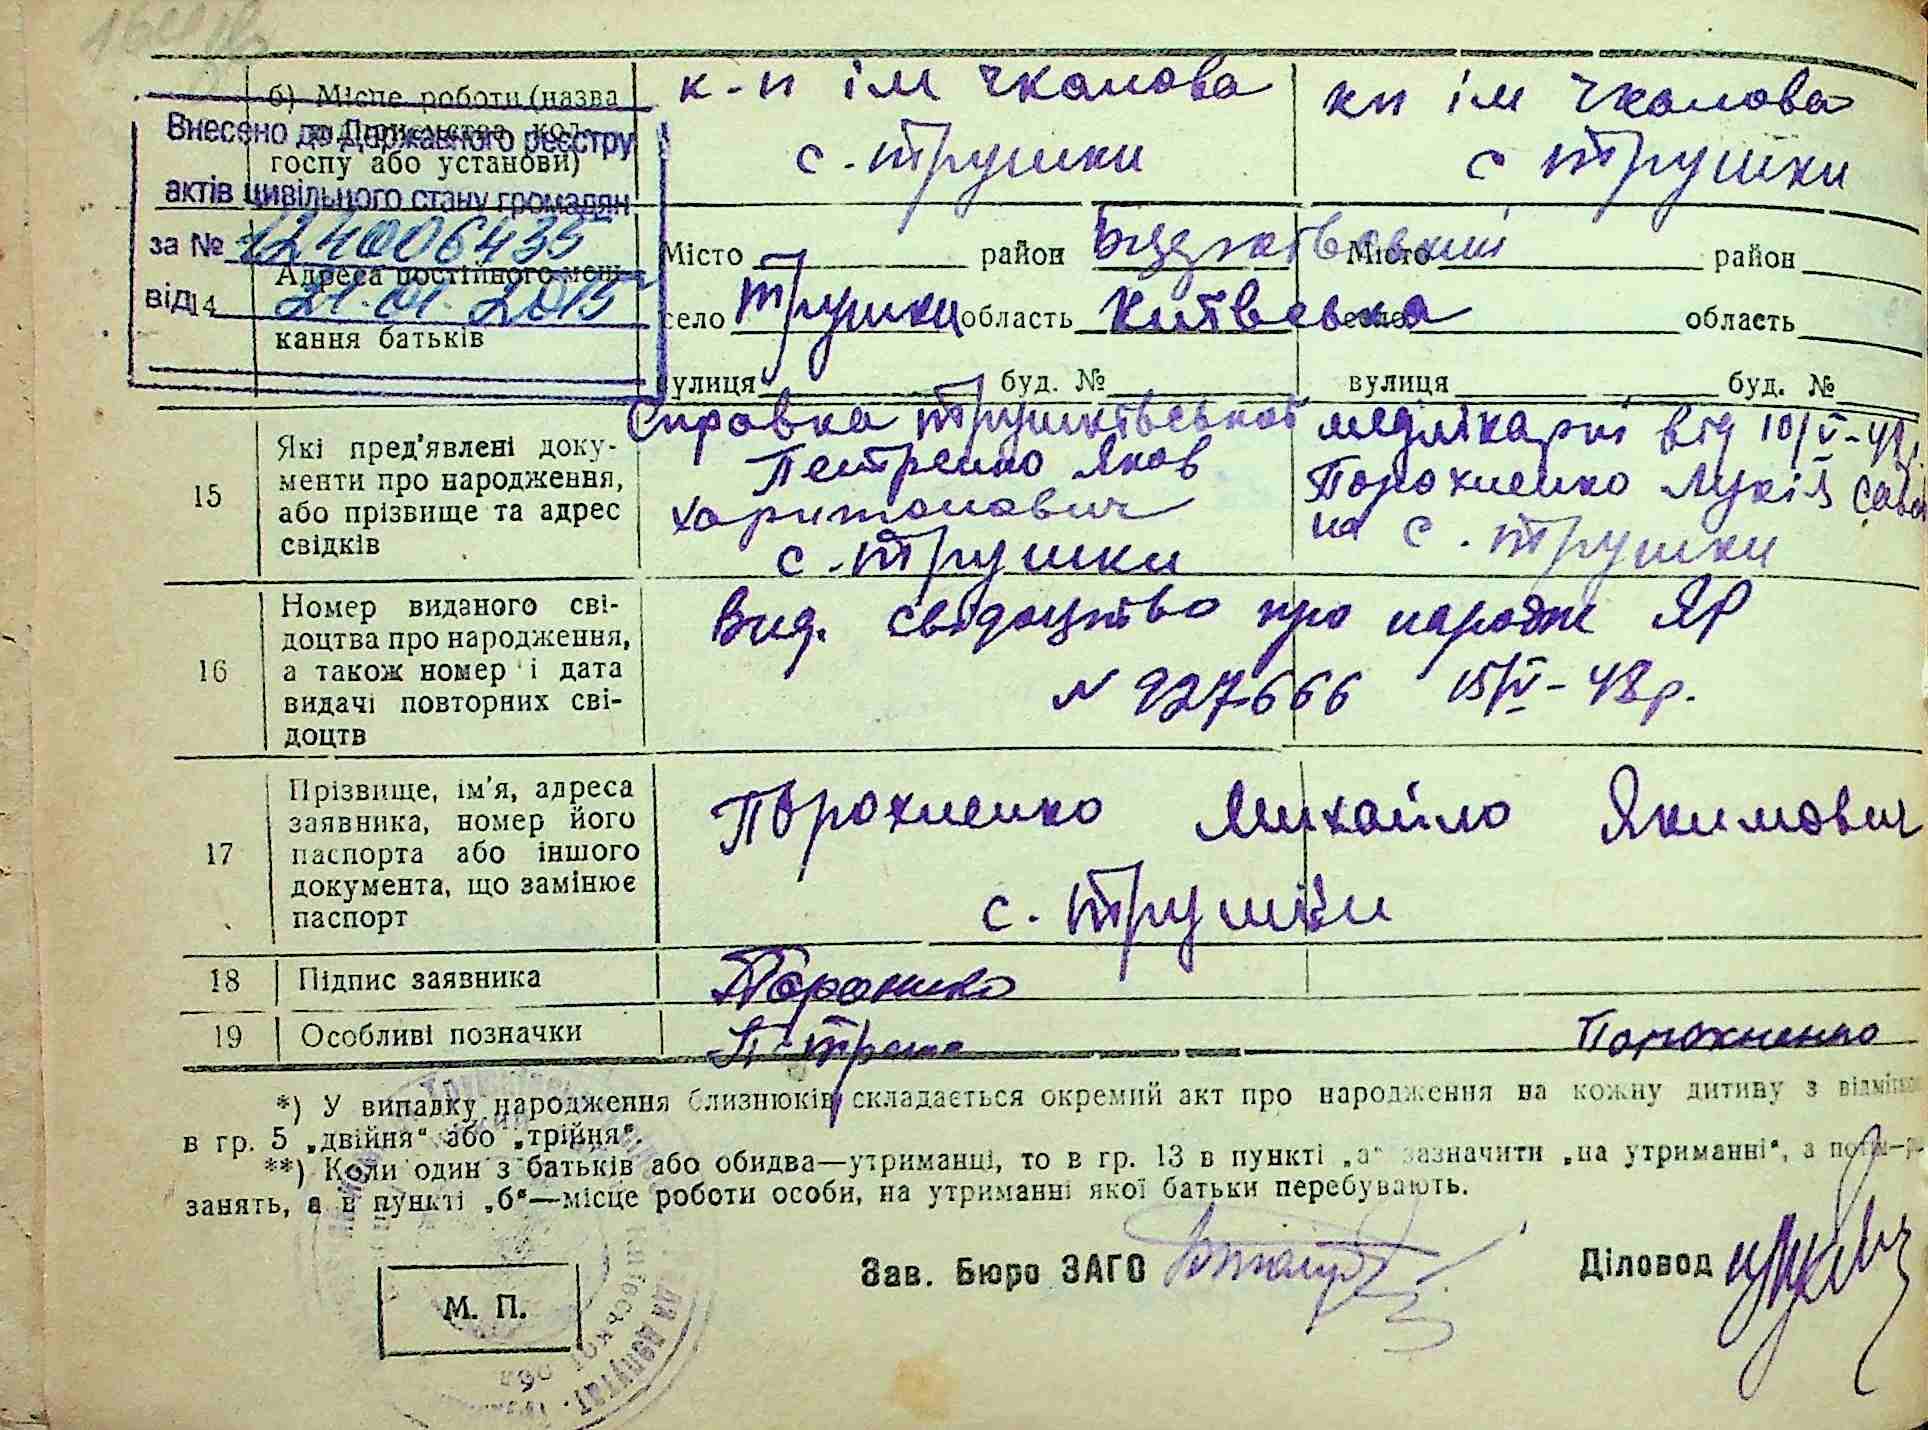 б) Місце роботи (назва
підприємства, кол-
госпу або установи)
к-п ім Чкалова
с. Трушки
кп ім Чкалова
с Трушки
Внесено до Державного реєстру
актів цивільного стану громадян
за № 124006435
від 21.01.2015
14
Адреса постійного меш-
кання батьків
Місто район
село Трушки область Київська
вулиця буд. №
Місто район
село область
вулиця буд. №
15
Які пред'явлені доку-
менти про народження,
або прізвище та адрес
свідків
Справка Трушківської медлікарні від 10/V-48
Петренко Яков
Харитонович
с. Трушки
Порохненко Лукія Сав
на с. Трушки
16
Номер виданого сві-
доцтва про народження,
а також номер і дата
видачі повторних сві-
доцтв
Вид. свідоцтво про народж ЯР
N 927666 15/V-48р.
17
Прізвище, ім'я, адреса
заявника, номер його
паспорта або іншого
документа, що замінює
паспорт
Порохненко Михайло Якимович
с. Трушки
18 Підпис заявника
19 Особливі позначки Порохненко
*) У випадку народження близнюків складається окремий акт про народження на кожну дитину з відміткою
в гр. 5 „двійня“ або „трійня“.
**) Коли один з батьків або обидва—утриманці, то в гр. 13 в пункті „а“ зазначити „на утриманні“, а
занять, а в пункті „б“—місце роботи особи, на утриманні якої батьки перебувають.
Зав. Бюро ЗАГС
Діловод
М. П.